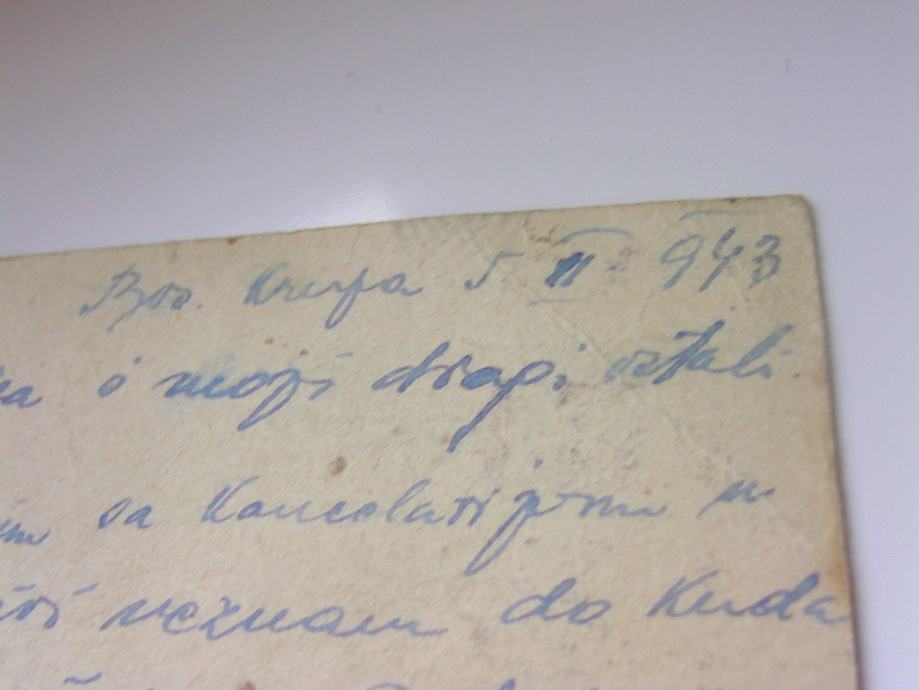 Bos. Krupa 5. II 943
i moji dragi ostali.
sa Kancelarijom u
neznam do Kuda